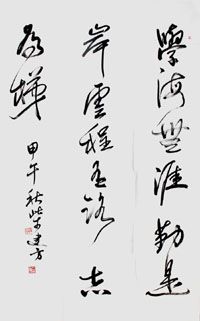 學海無涯勤是
岸雲程有路志
為梯
甲午秋柴建方